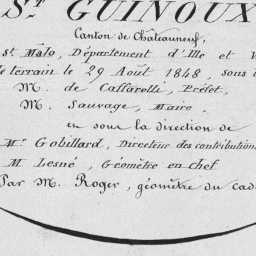 ST. GUINOUX
Canton de Châteauneuf,
St. Malo, Département d'Ille et V
le terrain le 29 Août 1848, sous
M. de Caffarelle, Préfet,
M. Sauvage, Maire.
en sous la direction de
Mr. Gobillard, Directeur des contribution
M Lesné, Géomètre en chef
Par M. Roger, géomètre du cad